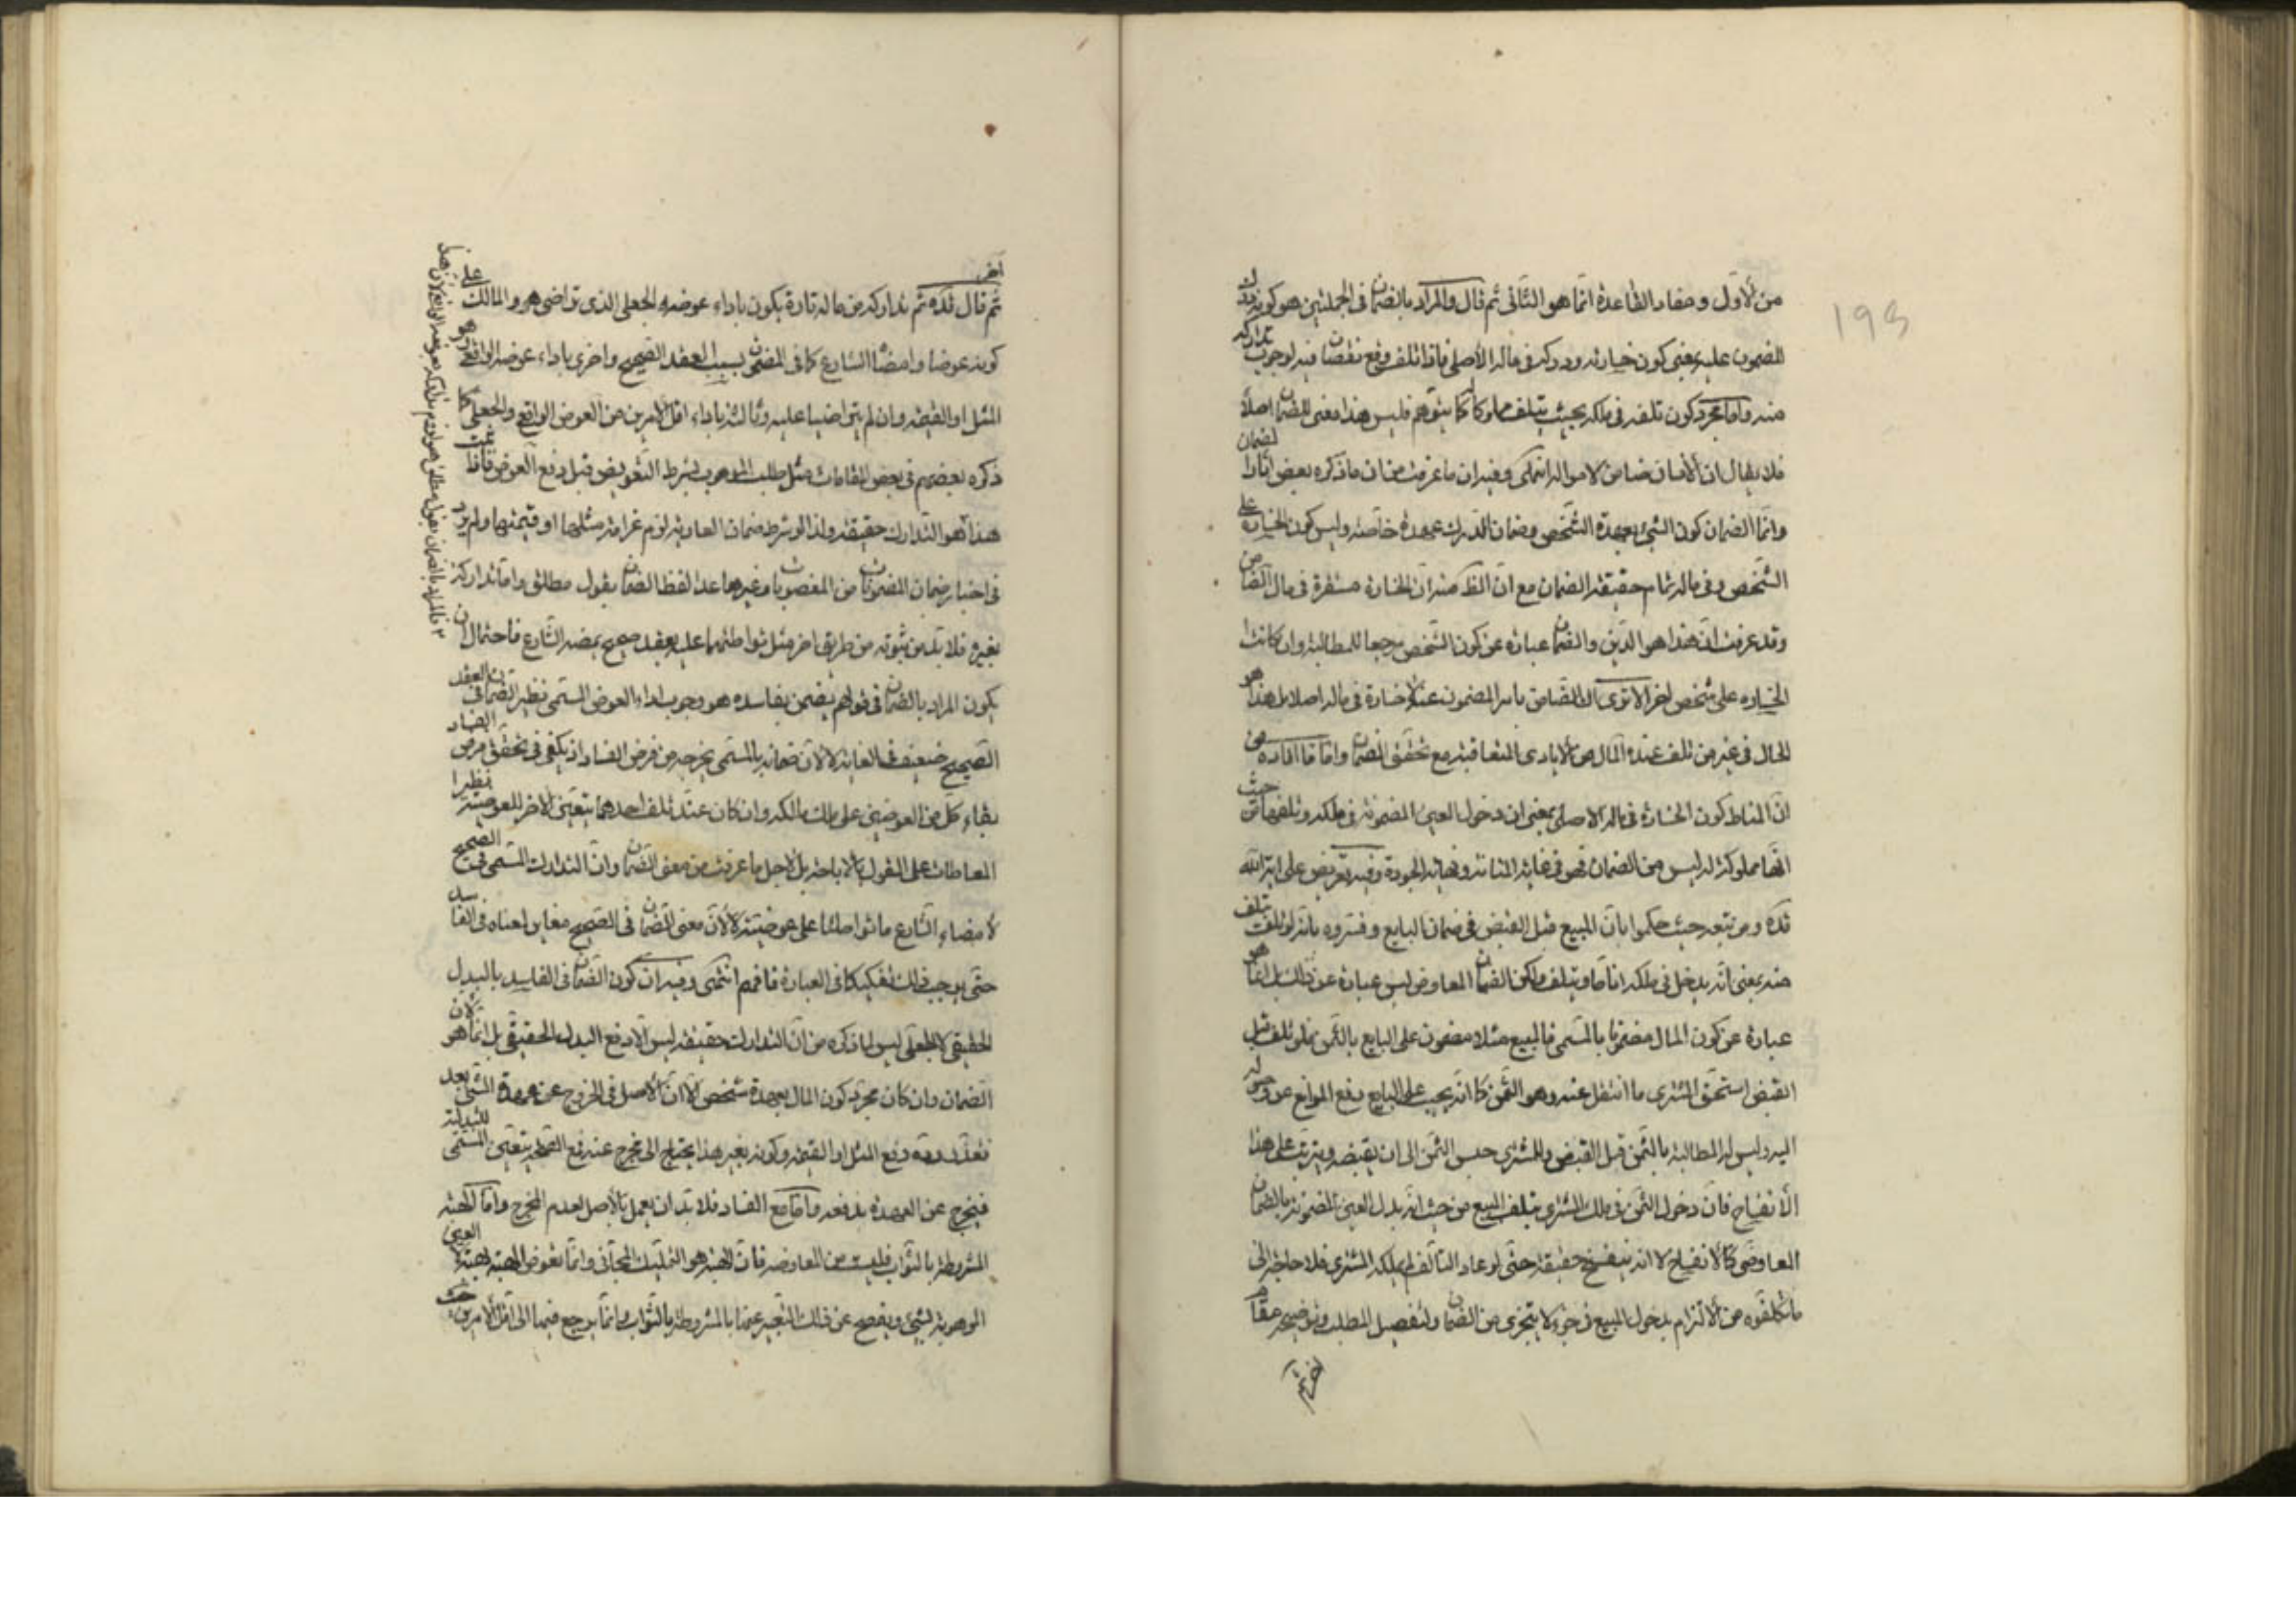 من الأول و مفاد القاعدة انما هو الثاني ثم قال والمراد بالضمان في الجملتين هو كون درك
المضمون عليه بمعنى كون خسارته ودركه في ماله الأصلي فاذا تلف وقع نقصان فيه لوجوب تداركه
منه واما مجرد كون تلفه في ملكه بحيث يتلف مملوكا له كما يتوهم فليس هذا معنى للضمان اصلا
فلا يقال ان الانسان ضامن لامواله انتهى وفيه ان ما عرفت من ان ما ذكره بعض اثار الضمان
وانما الضمان كون الشيء بعهدة الشخص وضمان الدرك عهدة خاصة وليس كون الخسارة على
الشخص وفي ماله تمام حقيقة الضمان مع ان الظ منه ان الخسارة مستقرة في مال الضامن
وقد عرفت ان هذا هو الدين والضمان عبارة عن كون الشخص مرجعا للمطالبة وان كانت
الخسارة على شخص اخر الا ترى ان الضامن بامر المضمون عنه لا خسارة في ماله اصلا بل هذا هو
الحال في غير من تلف عنده المال من الايادي المتعاقبة مع تحقق الضمان واما ما افاده من
ان المناط كون الخسارة في ماله الاصلي بمعنى ان دخول العين المضمونة في ملكه وتلفها من حيث
انها مملوكة له ليس من الضمان فهو في غاية المتانة ونهاية الجودة وفيه تعريض على اية الله
قده ومن تبعه حيث حكموا بان المبيع قبل القبض في ضمان البايع وفسروه بانه لو تلف تلف
منه بمعنى انه يدخل في ملكه انا ما ويتلف ولكن الضمان المعاوضي ليس عبارة عن ذلك بل انما هو
عبارة عن كون المال مضمونا بالمسمى فالمبيع مثلا مضمون على البايع بالثمن فلو تلف قبل
القبض استحق المشتري ما انتقل عنه وهو الثمن كما انه يجب على البايع دفع الموانع عن وصوله
اليه وليس له المطالبة بالثمن قبل القبض وللمشتري حبس الثمن الى ان يقبضه ويترتب على هذا
الانفساخ فان دخول الثمن في ملك المشتري بتلف المبيع من حيث انه بدل العين المضمونة بالضمان
المعاوضي كالانفساخ لا انه ينفسخ حقيقة حتى لو عاد التالف لم يملكه المشتري فلا حاجة الى
ما تكلفوه من الالتزام بدخول المبيع في جزء لا يتجزى من الضمان ولتفصيل المطلب وتوضيحه مقام
اخر ثم
198
اخر
ثم قال قده ثم تداركه من ماله تارة يكون باداء عوضه الجعلي الذي تراضى هو والمالك على
كونه عوضا وامضاه الشارع كما في المضمون بسبب العقد الصحيح واخرى باداء عوضه الواقعي وهو
المثل او القيمة وان لم يتراضيا عليه وثالثة باداء اقل الامرين من العوض الواقعي والجعلي كما
ذكره بعضهم في بعض المقامات مثل طلب الموهوب بشرط التعويض قبل دفع العوض فاذا ثبت
هذا هو التدارك حقيقة ولذا لو شرط ضمان العارية لزم غرامة مثلها او قيمتها ولم يرد
في اخبار ضمان المضمونات من المغصوبات وغيرها عدا لفظ الضمان بقول مطلق واما تداركه
بغيره فلا بد من ثبوته من طريق اخر مثل تواطئهما عليه بعقد صحيح يمضيه الشارع فاحتمال ان
يكون المراد بالضمان في قولهم يضمن بفاسده هو وجوب اداء العوض المسمى نظير الضمان في العقد
الصحيح ضعيف في الغاية لا لان ضمانه بالمسمى يخرجه من فرض الفساد اذ يكفي في تحقق فرض الفساد
بقاء كل من العوضين على ملك مالكه وان كان عند تلف احدهما يتعين الاخر للعوضية نظير
المعاطات على القول بالاباحة بل لاجل ما عرفت من معنى الضمان وان التدارك بالمسمى في الصحيح
لامضاء الشارع ما تواطئا على عوضيته لا لان معنى الضمان في الصحيح مغاير لمعناه في الفاسد
حتى يوجب ذلك تفكيكا في العبارة فافهم انتهى وفيه ان كون الضمان في الفاسد بالبدل
الحقيقي لا الجعلي ليس لما ذكره من ان التدارك حقيقة ليس الا دفع البدل الحقيقي بل انما هو لان
الضمان وان كان مجرد كون المال بعهدة شخص الا ان الاصل في الخروج عن عهدة الشيء بعد
تعذر رده دفع المثل او القيمة وكونه بغير هذا يحتاج الى مخرج عنه فمع الصحة يتعين المسمى للبدلية
فيخرج عن العهدة بدفعه واما مع الفساد فلا بد ان يعمل بالاصل لعدم المخرج واما الهبة
المشروطة بالثواب فليست من المعاوضة فان الهبة هو التمليك المجاني وانما تعوض الهبة لا العين
الموهوبة لشيء ويفصح عن ذلك التعبير عنها بالمشروطة بالثواب وانما يرجع فيها الى اقل الامرين حيث